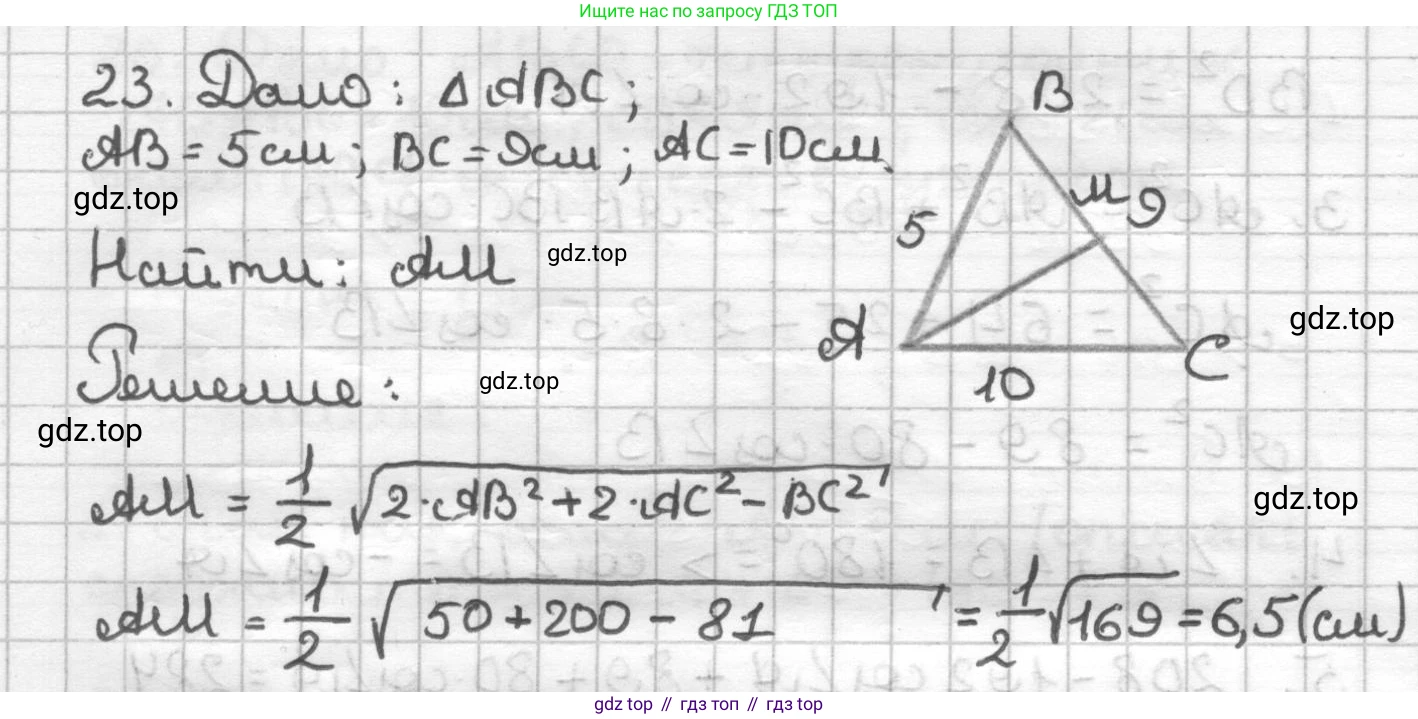 Ищите нас по запросу ГДЗ ТОП
23. Дано: △ ABC;
AB = 5 см; BC = 9 см; AC = 10 см.
gdz.top
Найти: AM
gdz.top
Решение:
gdz.top
gdz.top
B
M
9
5
gdz.top
A
C
10
AM = 1/2 √(2·AB² + 2·AC² - BC²)
gdz.top
AM = 1/2 √(50 + 200 - 81) = 1/2 √169 = 6,5 (см)
gdz.top // гдз топ // гдз top